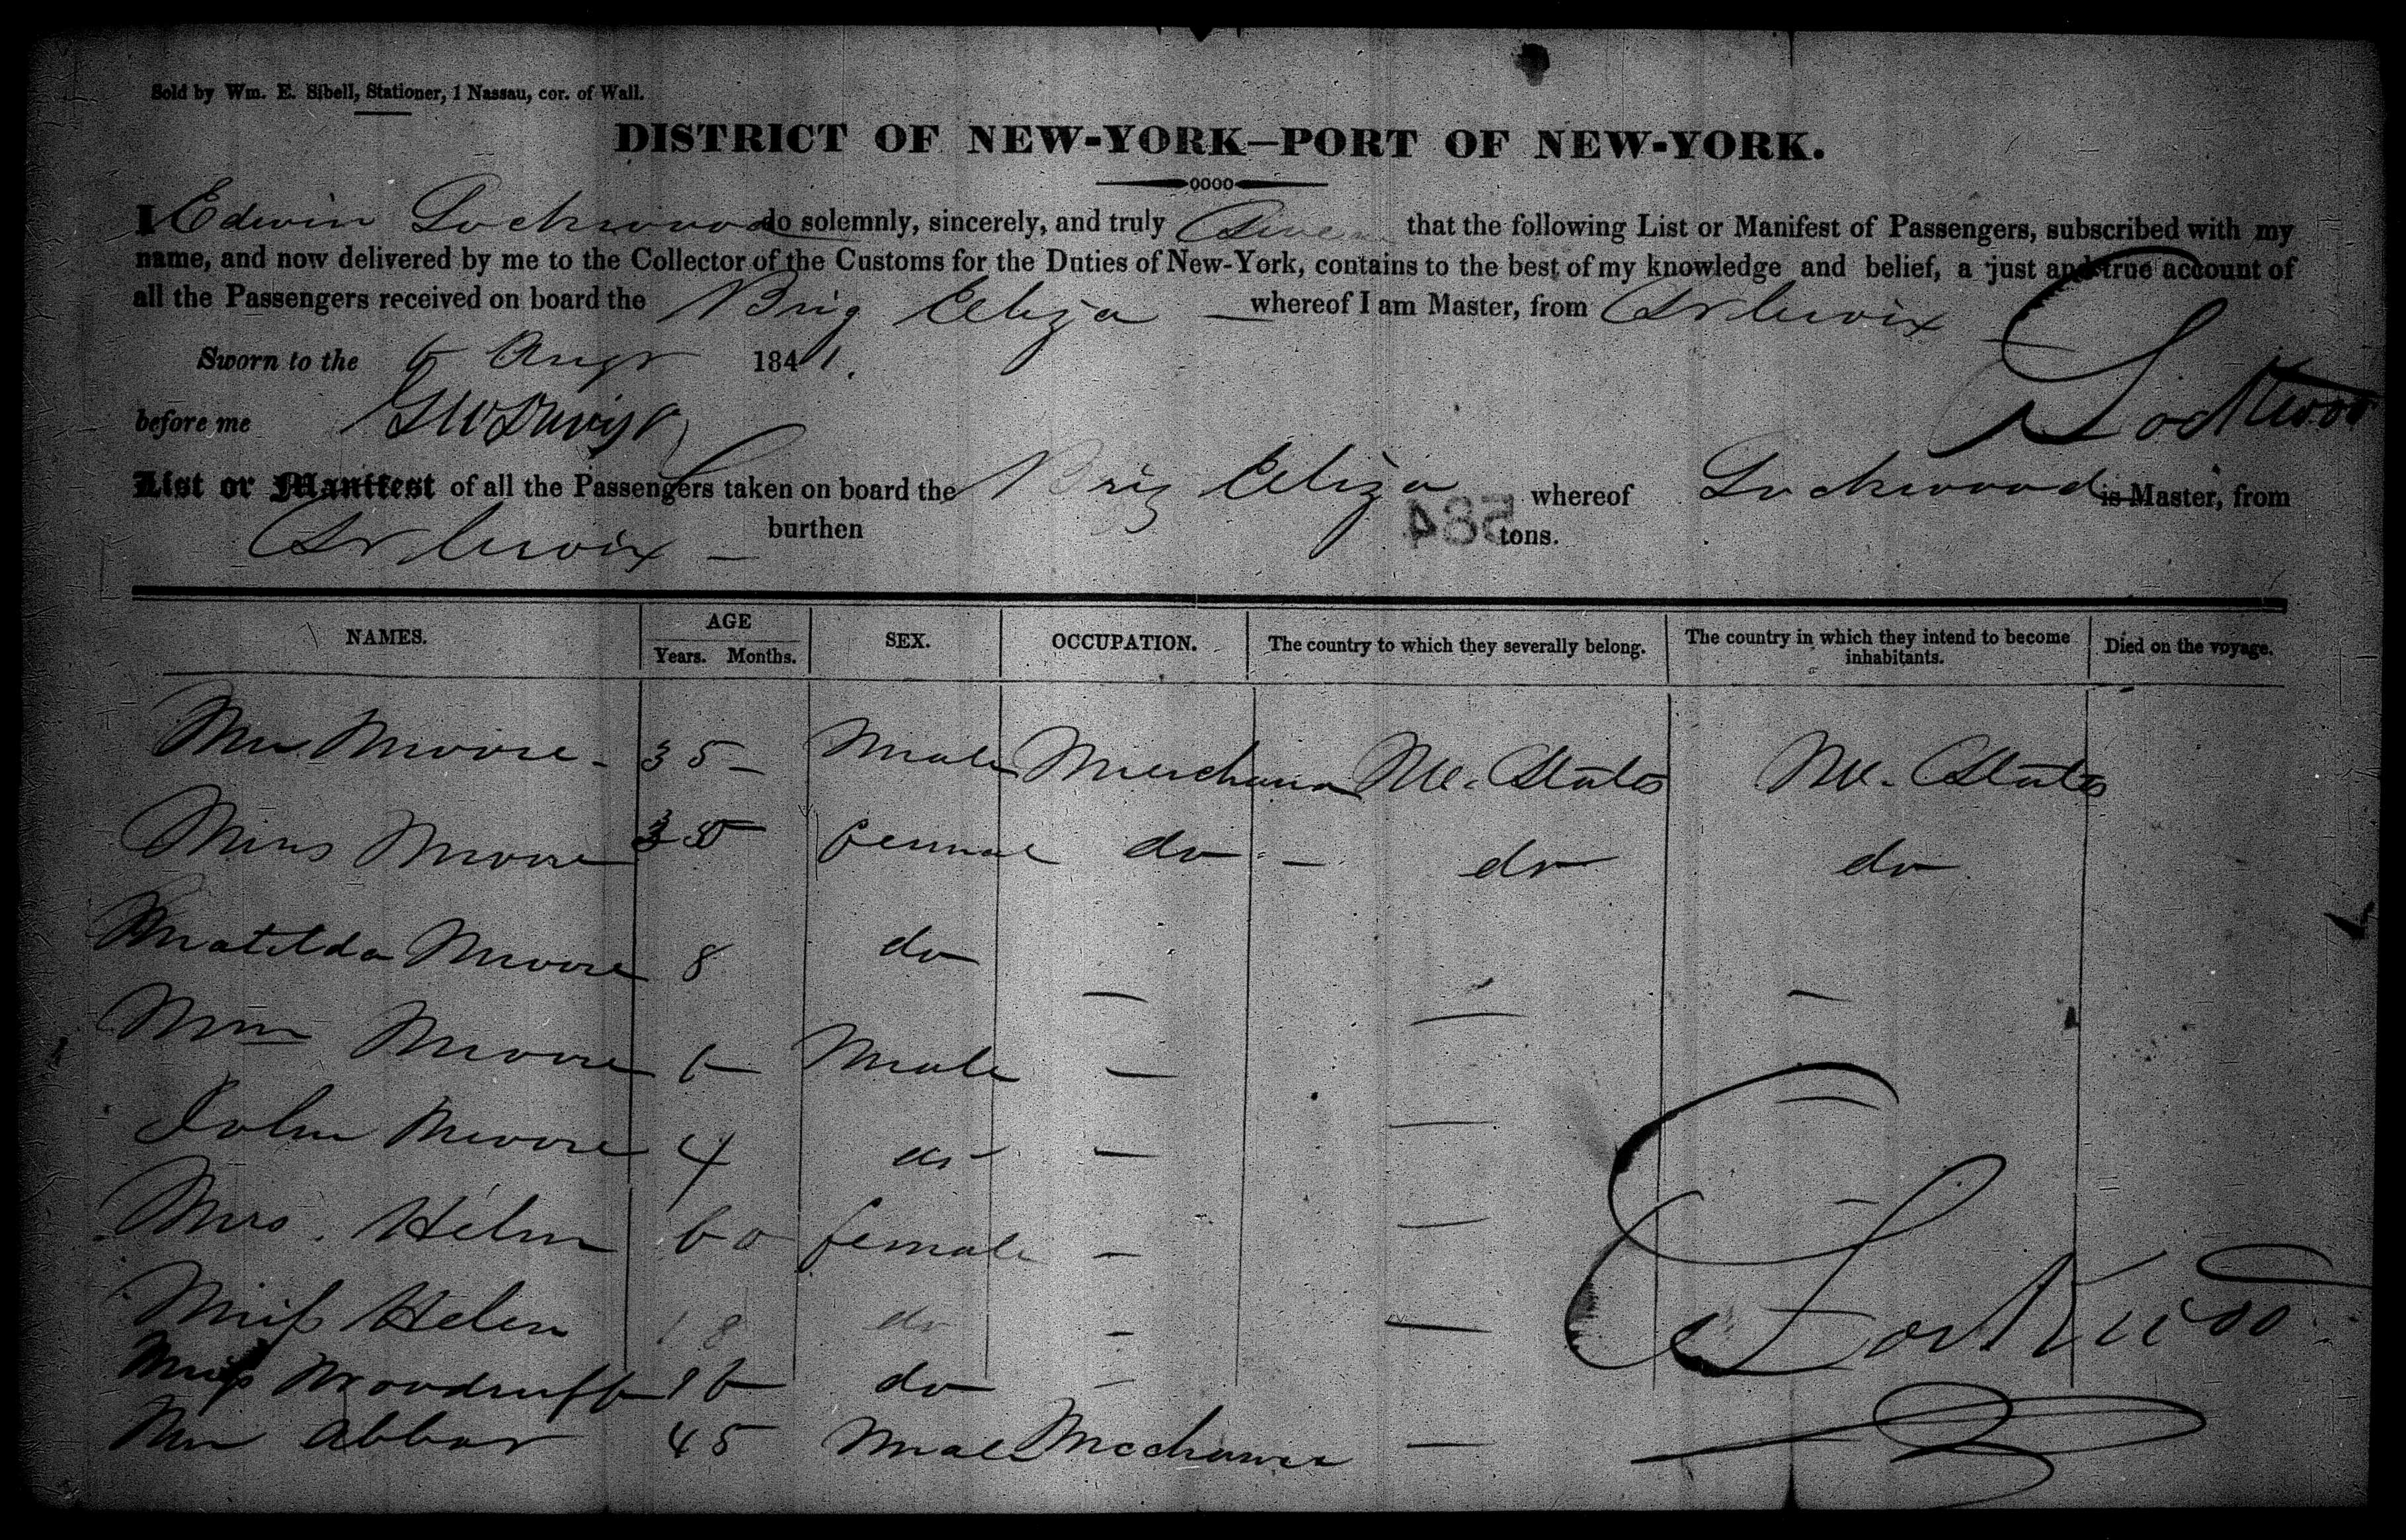 Sold by Wm. E. Sibell, Stationer, 1 Nassau, cor. of Wall.
DISTRICT OF NEW-YORK—PORT OF NEW-YORK.
I Edwin Lockwood do solemnly, sincerely, and truly Swear that the following List or Manifest of Passengers, subscribed with my
name, and now delivered by me to the Collector of the Customs for the Duties of New-York, contains to the best of my knowledge and belief, a just and true account of
all the Passengers received on board the Brig Eliza whereof I am Master, from St Croix
Sworn to the 6 Augt 1841.
E Lockwood
before me
List or Manifest of all the Passengers taken on board the Brig Eliza whereof Lockwood is Master, from
St Croix — burthen tons.
584
NAMES. AGE Years. Months. SEX. OCCUPATION. The country to which they severally belong. The country in which they intend to become inhabitants. Died on the voyage.
Mr Moore - 35 - Male Merchant Ud. States Ud. States
Moore 35 female do - do do
Matilda Moore 8 do — — —
Wm Moore 6 Male — — —
John Moore 4 do — —
Mrs. Helm 60 female — —
Miss Helen 18 do - —
Miss Woodruff 16 do —
Mr Abbot 45 Male Mechanic —
E Lockwood